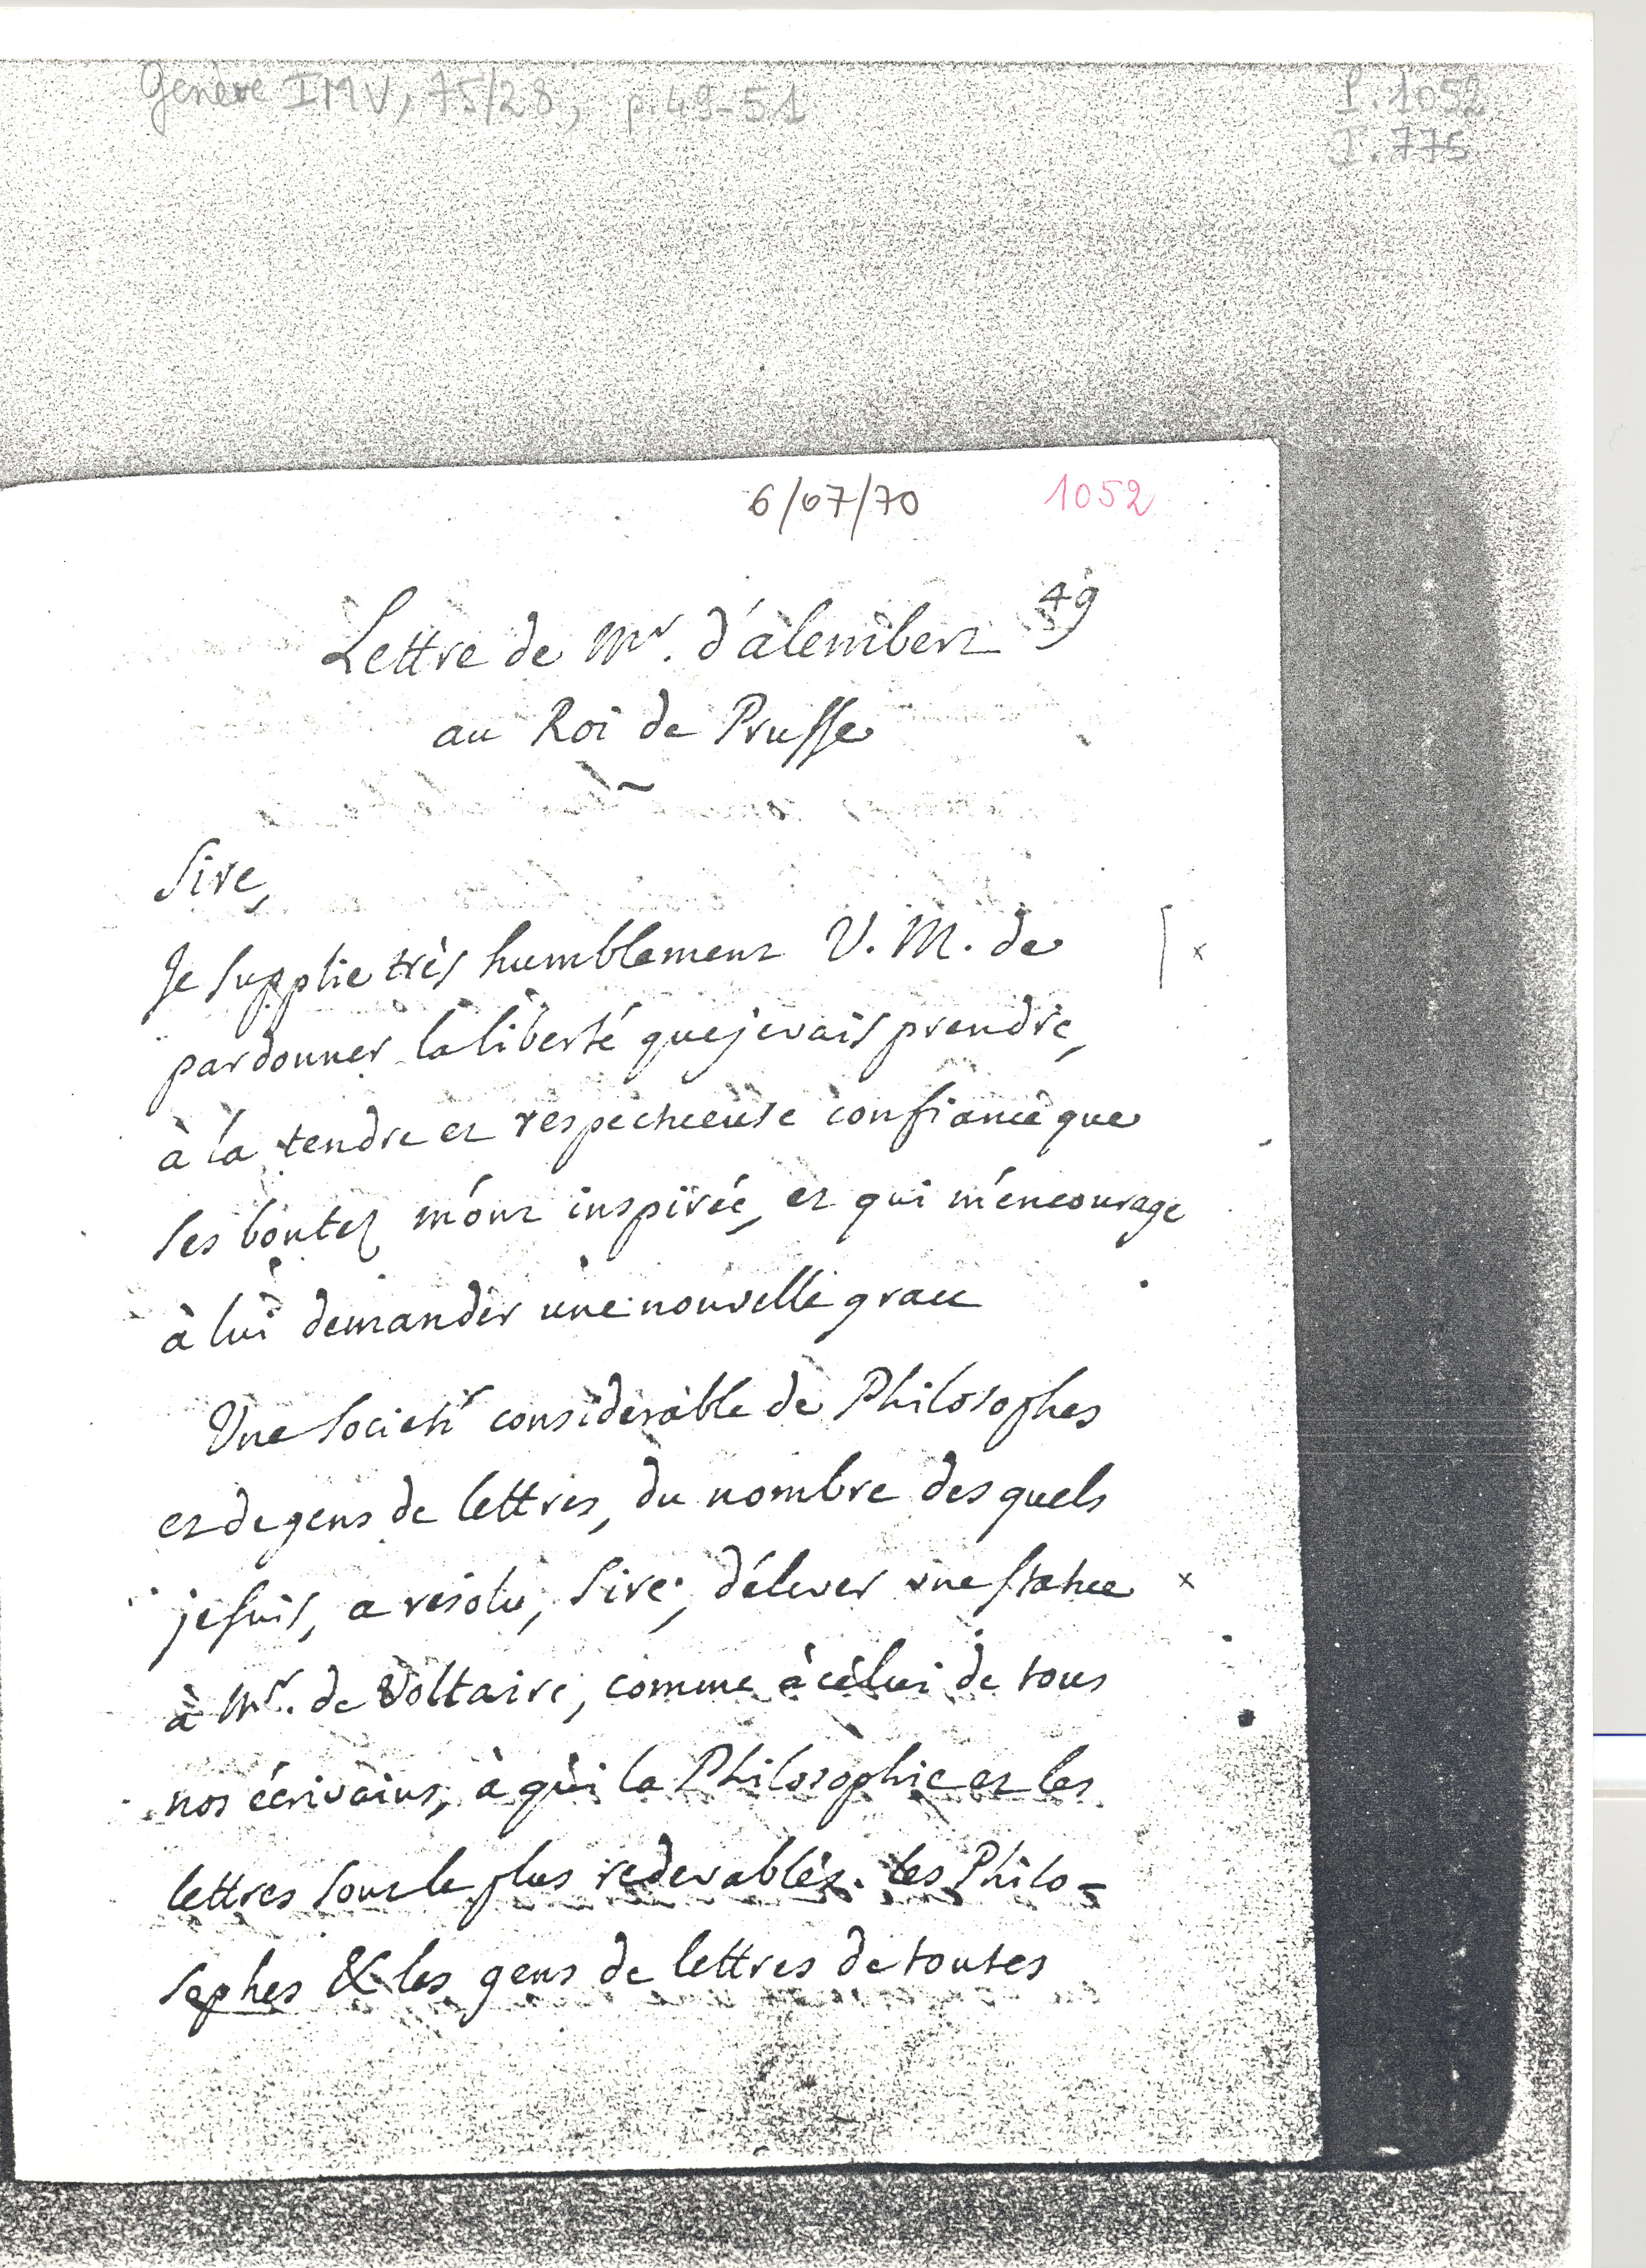 Genève IMV, 75/28, p. 49-51
P. 1052
I. 775
6/07/70
1052
49
Lettre de Mr. d'alembert
au Roi de Prusse
Sire,
Je supplie très humblement V. M. de
pardonner la liberté que je vais prendre,
à la tendre et respectueuse confiance que
ses boutez m'ont inspirée, et qui m'encourage
à lui demander une nouvelle grace
Une Societé considerable de Philosophes
et de gens de lettres, du nombre des quels
je suis, a résolu, Sire, d'élever une statue
à Mr. de Voltaire, comme à célui de tous
nos écrivains, à qui la Philosophie et les
lettres sont le plus redevables. les Philo-
sophes & les gens de lettres de toutes